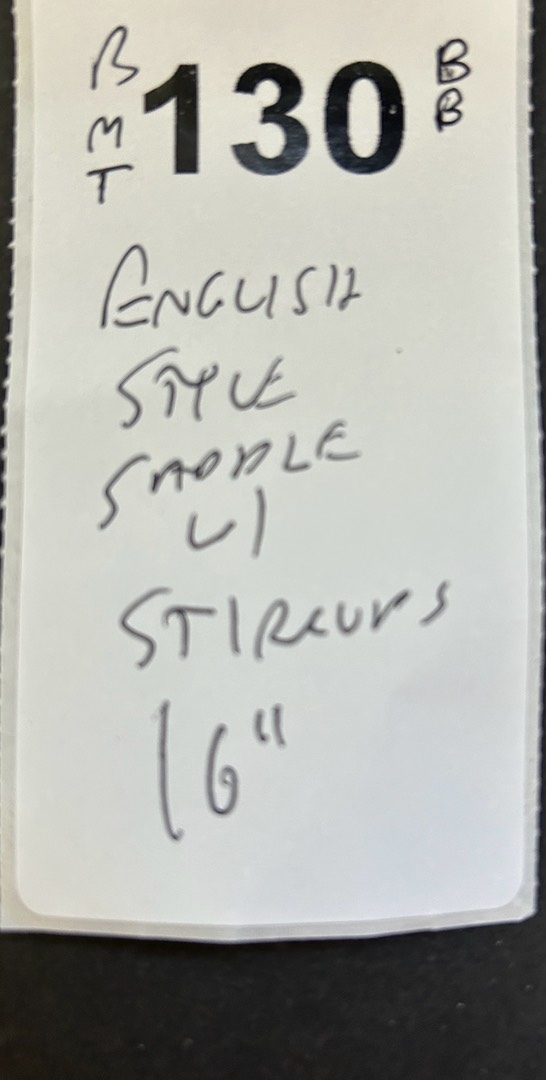 BMT 130 BB
ENGLISH
STYLE
SADDLE
W/
STIRRUPS
16"